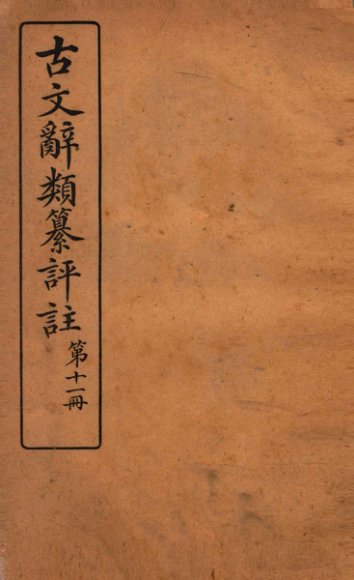 古文辭類纂評註
第十一冊